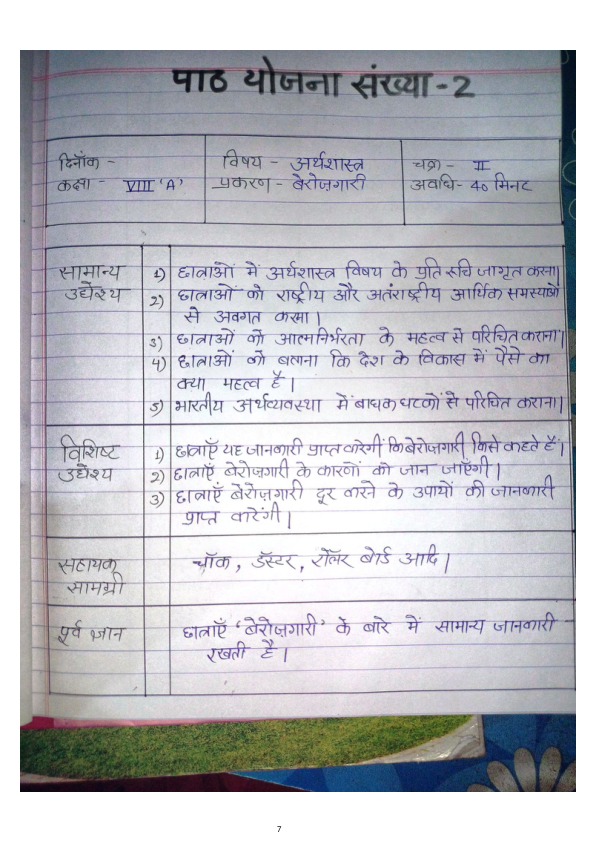 पाठ योजना संख्या - 2
दिनाँक -
कक्षा - VIII 'A'
विषय - अर्थशास्त्र
प्रकरण - बेरोज़गारी
चक्र - II
अवधि - 40 मिनट
सामान्य उद्देश्य
1) छात्राओं में अर्थशास्त्र विषय के प्रति रुचि जागृत करना।
2) छात्राओं को राष्ट्रीय और अतंराष्ट्रीय आर्थिक समस्याओं
से अवगत करना।
3) छात्राओं को आत्मनिर्भरता के महत्व से परिचित कराना।
4) छात्राओं को बताना कि देश के विकास में पैसे का
क्या महत्व है।
5) भारतीय अर्थव्यवस्था में बाधक घटकों से परिचित कराना।
विशिष्ट उद्देश्य
1) छात्राएँ यह जानकारी प्राप्त करेगीं कि बेरोज़गारी किसे कहते हैं।
2) छात्राएँ बेरोज़गारी के कारणों को जान जाएँगी।
3) छात्राएँ बेरोज़गारी दूर करने के उपायों की जानकारी
प्राप्त करेंगी।
सहायक सामग्री
चॉक, डॅस्टर, रोलॅर बोर्ड आदि।
पूर्व ज्ञान
छात्राएँ 'बेरोज़गारी' के बारे में सामान्य जानकारी
रखती है।
7